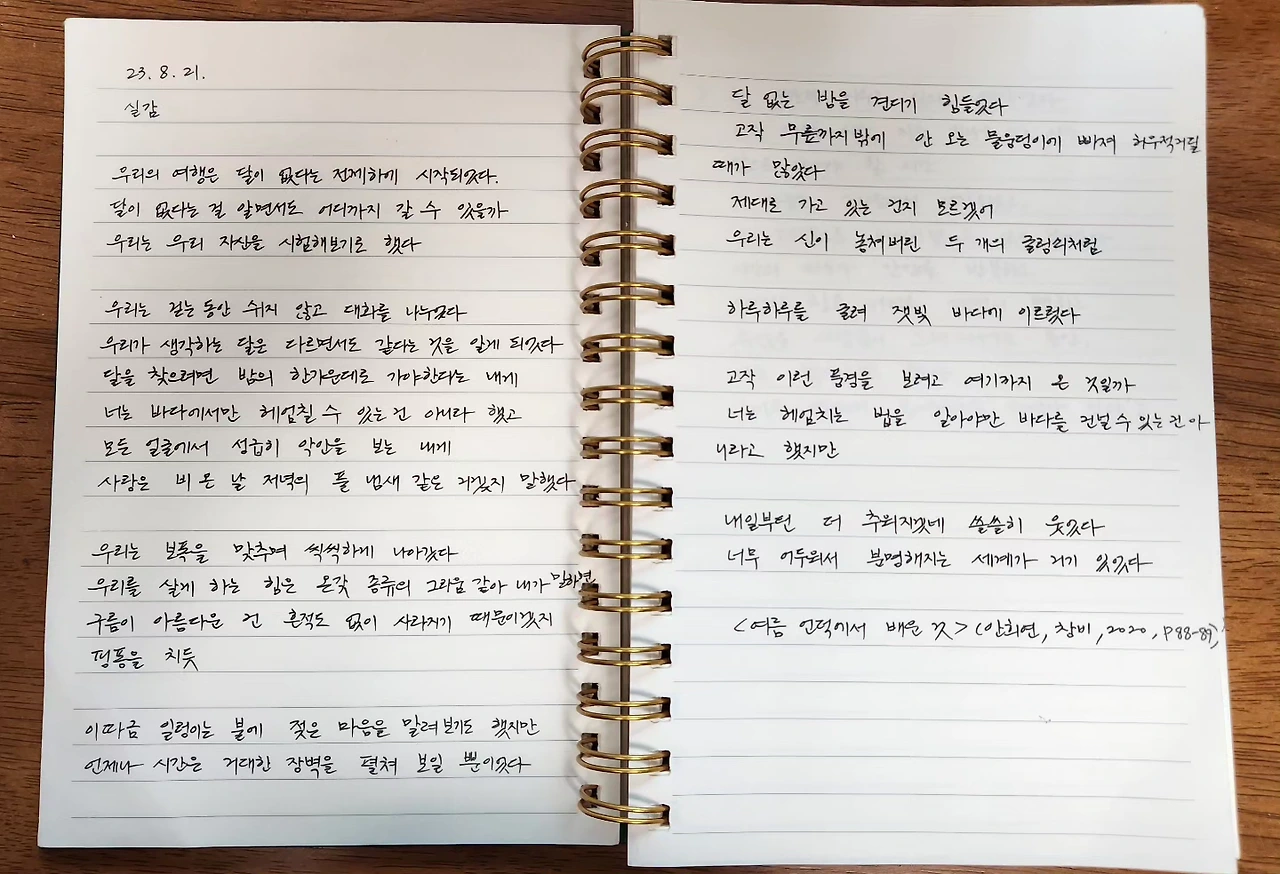 23. 8. 21.
실감
우리의 여행은 달이 없다는 전제하에 시작되었다.
달이 없다는 걸 알면서도 어디까지 갈 수 있을까
우리는 우리 자신을 시험해보기로 했다
우리는 걷는 동안 쉬지 않고 대화를 나누었다
우리가 생각하는 달은 다르면서도 같다는 것을 알게 되었다
달을 찾으려면 밤의 한가운데로 가야한다는 내게
너는 바다에서만 헤엄칠 수 있는 건 아니라 했고
모든 얼굴에서 성급히 악인을 보는 내게
사랑은 비 온 날 저녁의 풀 냄새 같은 거겠지 말했다
우리는 보폭을 맞추며 씩씩하게 나아갔다
우리를 살게 하는 힘은 온갖 종류의 그리움 같아 내가 말하면
구름이 아름다운 건 흔적도 없이 사라지기 때문이겠지
핑퐁을 치듯
이따금 일렁이는 불에 젖은 마음을 말려보기도 했지만
언제나 시간은 거대한 장벽을 펼쳐 보일 뿐이었다
달 없는 밤을 견디기 힘들었다
고작 무릎까지밖에 안 오는 물웅덩이에 빠져 허우적거릴
때가 많았다
제대로 가고 있는 건지 모르겠어
우리는 신이 놓쳐버린 두 개의 굴렁쇠처럼
하루하루를 굴려 잿빛 바다에 이르렀다
고작 이런 풍경을 보려고 여기까지 온 것일까
너는 헤엄치는 법을 알아야만 바다를 건널 수 있는 건 아
니라고 했지만
내일부턴 더 추워지겠네 쓸쓸히 웃었다
너무 어두워서 분명해지는 세계가 거기 있었다
<여름 언덕에서 배운 것> (안희연, 창비, 2020, p88-89)